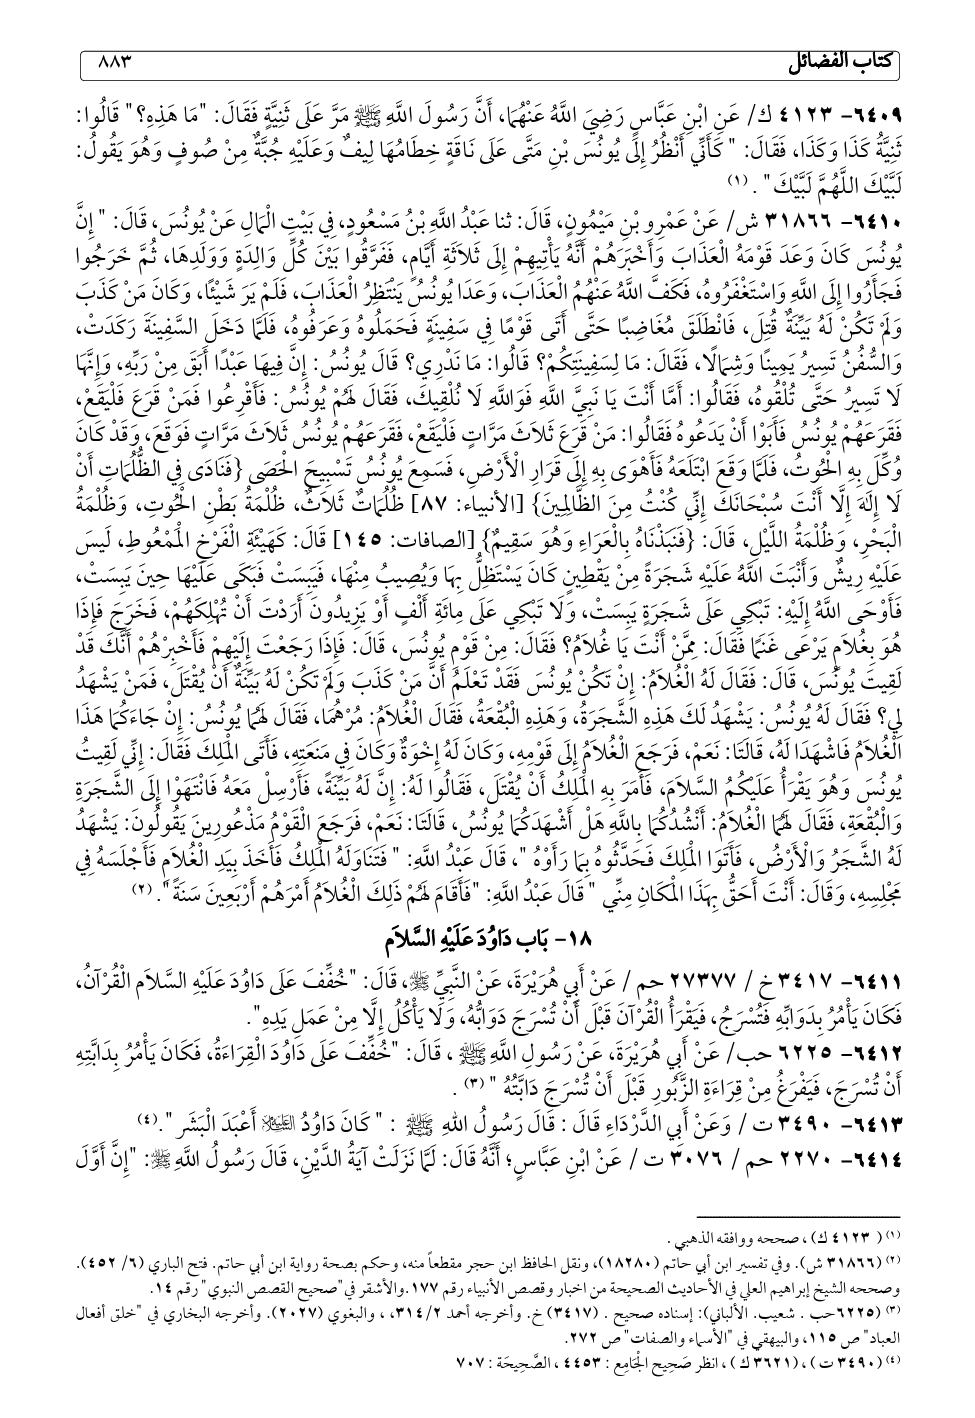 كتاب الفضائل ٨٨٣
٦٤٠٩- ٤١٢٣ ك/ عَنِ ابْنِ عَبَّاسٍ رَضِيَ اللَّهُ عَنْهُمَا، أَنَّ رَسُولَ اللَّهِ ﷺ مَرَّ عَلَى ثَنِيَّةٍ فَقَالَ: "مَا هَذِهِ؟" قَالُوا:
ثَنِيَّةُ كَذَا وَكَذَا، فَقَالَ: "كَأَنِّي أَنْظُرُ إِلَى يُونُسَ بْنِ مَتَّى عَلَى نَاقَةٍ خِطَامُهَا لِيفٌ وَعَلَيْهِ جُبَّةٌ مِنْ صُوفٍ وَهُوَ يَقُولُ:
لَبَّيْكَ اللَّهُمَّ لَبَّيْكَ" . (١)
٦٤١٠- ٣١٨٦٦ ش/ عَنْ عَمْرِو بْنِ مَيْمُونٍ، قَالَ: ثنا عَبْدُ اللَّهِ بْنُ مَسْعُودٍ، فِي بَيْتِ الْمَالِ عَنْ يُونُسَ، قَالَ: " إِنَّ
يُونُسَ كَانَ وَعَدَ قَوْمَهُ الْعَذَابَ وَأَخْبَرَهُمْ أَنَّهُ يَأْتِيهِمْ إِلَى ثَلَاثَةِ أَيَّامٍ، فَفَرَّقُوا بَيْنَ كُلِّ وَالِدَةٍ وَوَلَدِهَا، ثُمَّ خَرَجُوا
فَجَأَرُوا إِلَى اللَّهِ وَاسْتَغْفَرُوهُ، فَكَفَّ اللَّهُ عَنْهُمُ الْعَذَابَ، وَغَدَا يُونُسُ يَنْتَظِرُ الْعَذَابَ، فَلَمْ يَرَ شَيْئًا، وَكَانَ مَنْ كَذَبَ
وَلَمْ تَكُنْ لَهُ بَيِّنَةٌ قُتِلَ، فَانْطَلَقَ مُغَاضِبًا حَتَّى أَتَى قَوْمًا فِي سَفِينَةٍ فَحَمَلُوهُ وَعَرَفُوهُ، فَلَمَّا دَخَلَ السَّفِينَةَ رَكَدَتْ،
وَالسُّفُنُ تَسِيرُ يَمِينًا وَشِمَالًا، فَقَالَ: مَا لِسَفِينَتِكُمْ؟ قَالُوا: مَا نَدْرِي؟ قَالَ يُونُسُ: إِنَّ فِيهَا عَبْدًا أَبَقَ مِنْ رَبِّهِ، وَإِنَّهَا
لَا تَسِيرُ حَتَّى تُلْقُوهُ، فَقَالُوا: أَمَّا أَنْتَ يَا نَبِيَّ اللَّهِ فَوَاللَّهِ لَا نُلْقِيكَ، فَقَالَ لَهُمْ يُونُسُ: فَأَقْرِعُوا فَمَنْ قَرَعَ فَلْيَقَعْ،
فَقَرَعَهُمْ يُونُسُ فَأَبَوْا أَنْ يَدَعُوهُ فَقَالُوا: مَنْ قَرَعَ ثَلَاثَ مَرَّاتٍ فَلْيَقَعْ، فَقَرَعَهُمْ يُونُسُ ثَلَاثَ مَرَّاتٍ فَوَقَعَ، وَقَدْ كَانَ
وُكِّلَ بِهِ الْحُوتُ، فَلَمَّا وَقَعَ ابْتَلَعَهُ فَأَهْوَى بِهِ إِلَى قَرَارِ الْأَرْضِ، فَسَمِعَ يُونُسُ تَسْبِيحَ الْحَصَى {فَنَادَى فِي الظُّلُمَاتِ أَنْ
لَا إِلَهَ إِلَّا أَنْتَ سُبْحَانَكَ إِنِّي كُنْتُ مِنَ الظَّالِمِينَ} [الأنبياء: ٨٧] ظُلُمَاتٌ ثَلَاثٌ، ظُلْمَةُ بَطْنِ الْحُوتِ، وَظُلْمَةُ
الْبَحْرِ، وَظُلْمَةُ اللَّيْلِ، قَالَ: {فَنَبَذْنَاهُ بِالْعَرَاءِ وَهُوَ سَقِيمٌ} [الصافات: ١٤٥] قَالَ: كَهَيْئَةِ الْفَرْخِ الْمَمْعُوطِ، لَيْسَ
عَلَيْهِ رِيشٌ وَأَنْبَتَ اللَّهُ عَلَيْهِ شَجَرَةً مِنْ يَقْطِينٍ كَانَ يَسْتَظِلُّ بِهَا وَيُصِيبُ مِنْهَا، فَيَبِسَتْ فَبَكَى عَلَيْهَا حِينَ يَبِسَتْ،
فَأَوْحَى اللَّهُ إِلَيْهِ: تَبْكِي عَلَى شَجَرَةٍ يَبِسَتْ، وَلَا تَبْكِي عَلَى مِائَةِ أَلْفٍ أَوْ يَزِيدُونَ أَرَدْتَ أَنْ تُهْلِكَهُمْ، فَخَرَجَ فَإِذَا
هُوَ بِغُلَامٍ يَرْعَى غَنَمًا فَقَالَ: مِمَّنْ أَنْتَ يَا غُلَامُ؟ فَقَالَ: مِنْ قَوْمِ يُونُسَ، قَالَ: فَإِذَا رَجَعْتَ إِلَيْهِمْ فَأَخْبِرْهُمْ أَنَّكَ قَدْ
لَقِيتَ يُونُسَ، قَالَ: فَقَالَ لَهُ الْغُلَامُ: إِنْ تَكُنْ يُونُسَ فَقَدْ تَعْلَمُ أَنَّ مَنْ كَذَبَ وَلَمْ تَكُنْ لَهُ بَيِّنَةٌ أَنْ يُقْتَلَ، فَمَنْ يَشْهَدُ
لِي؟ فَقَالَ لَهُ يُونُسُ: يَشْهَدُ لَكَ هَذِهِ الشَّجَرَةُ، وَهَذِهِ الْبُقْعَةُ، فَقَالَ الْغُلَامُ: مُرْهُمَا، فَقَالَ لَهُمَا يُونُسُ: إِنْ جَاءَكُمَا هَذَا
الْغُلَامُ فَاشْهَدَا لَهُ، قَالَتَا: نَعَمْ، فَرَجَعَ الْغُلَامُ إِلَى قَوْمِهِ، وَكَانَ لَهُ إِخْوَةٌ وَكَانَ فِي مَنَعَتِهِ، فَأَتَى الْمَلِكَ فَقَالَ: إِنِّي لَقِيتُ
يُونُسَ وَهُوَ يَقْرَأُ عَلَيْكُمُ السَّلَامَ، فَأَمَرَ بِهِ الْمَلِكُ أَنْ يُقْتَلَ، فَقَالُوا لَهُ: إِنَّ لَهُ بَيِّنَةً، فَأَرْسِلْ مَعَهُ فَانْتَهَوْا إِلَى الشَّجَرَةِ
وَالْبُقْعَةِ، فَقَالَ لَهُمَا الْغُلَامُ: أَنْشُدُكُمَا بِاللَّهِ هَلْ أَشْهَدَكُمَا يُونُسُ، قَالَتَا: نَعَمْ، فَرَجَعَ الْقَوْمُ مَذْعُورِينَ يَقُولُونَ: يَشْهَدُ
لَهُ الشَّجَرُ وَالْأَرْضُ، فَأَتَوَا الْمَلِكَ فَحَدَّثُوهُ بِمَا رَأَوْهُ "، قَالَ عَبْدُ اللَّهِ: " فَتَنَاوَلَهُ الْمَلِكُ فَأَخَذَ بِيَدِ الْغُلَامِ فَأَجْلَسَهُ فِي
مَجْلِسِهِ، وَقَالَ: أَنْتَ أَحَقُّ بِهَذَا الْمَكَانِ مِنِّي " قَالَ عَبْدُ اللَّهِ: "فَأَقَامَ لَهُمْ ذَلِكَ الْغُلَامُ أَمْرَهُمْ أَرْبَعِينَ سَنَةً". (٢)
١٨- بَاب دَاوُدَ عَلَيْهِ السَّلاَم
٦٤١١- ٣٤١٧ خ / ٢٧٣٧٧ حم / عَنْ أَبِي هُرَيْرَةَ، عَنْ النَّبِيِّ ﷺ، قَالَ: "خُفِّفَ عَلَى دَاوُدَ عَلَيْهِ السَّلاَم الْقُرْآنُ،
فَكَانَ يَأْمُرُ بِدَوَابِّهِ فَتُسْرَجُ، فَيَقْرَأُ الْقُرْآنَ قَبْلَ أَنْ تُسْرَجَ دَوَابُّهُ، وَلَا يَأْكُلُ إِلَّا مِنْ عَمَلِ يَدِهِ".
٦٤١٢- ٦٢٢٥ حب/ عَنْ أَبِي هُرَيْرَةَ، عَنْ رَسُولِ اللَّهِ ﷺ ، قَالَ: "خُفِّفَ عَلَى دَاوُدَ الْقِرَاءَةُ، فَكَانَ يَأْمُرُ بِدَابَّتِهِ
أَنْ تُسْرَجَ، فَيَفْرَغُ مِنْ قِرَاءَةِ الزَّبُورِ قَبْلَ أَنْ تُسْرَجَ دَابَّتُهُ " (٣) .
٦٤١٣- ٣٤٩٠ ت / وَعَنْ أَبِي الدَّرْدَاءِ قَالَ : قَالَ رَسُولُ اللهِ ﷺ : " كَانَ دَاوُدُ عليه السلام أَعْبَدَ الْبَشَرِ ".(٤)
٦٤١٤- ٢٢٧٠ حم / ٣٠٧٦ ت / عَنْ ابْنِ عَبَّاسٍ؛ أَنَّهُ قَالَ: لَمَّا نَزَلَتْ آيَةُ الدَّيْنِ، قَالَ رَسُولُ اللَّهِ ﷺ: "إِنَّ أَوَّلَ
(١) ( ٤١٢٣ ك) ، صححه ووافقه الذهبي .
(٢) (٣١٨٦٦ ش). وفي تفسير ابن أبي حاتم (١٨٢٨٠)، ونقل الحافظ ابن حجر مقطعاً منه، وحكم بصحة رواية ابن أبي حاتم. فتح الباري (٦/ ٤٥٢).
وصححه الشيخ إبراهيم العلي في الأحاديث الصحيحة من اخبار وقصص الأنبياء رقم ١٧٧ .والأشقر في"صحيح القصص النبوي" رقم ١٤.
(٣) (٦٢٢٥حب . شعيب. الألباني): إسناده صحيح . (٣٤١٧) خ. وأخرجه أحمد ٣١٤/٢ ، ، والبغوي (٢٠٢٧). وأخرجه البخاري في "خلق أفعال
العباد" ص ١١٥، والبيهقي في "الأسماء والصفات" ص ٢٧٢.
(٤) (٣٤٩٠ ت) ، (٣٦٢١ ك ) ، انظر صَحِيح الْجَامِع : ٤٤٥٣ ، الصَّحِيحَة : ٧٠٧